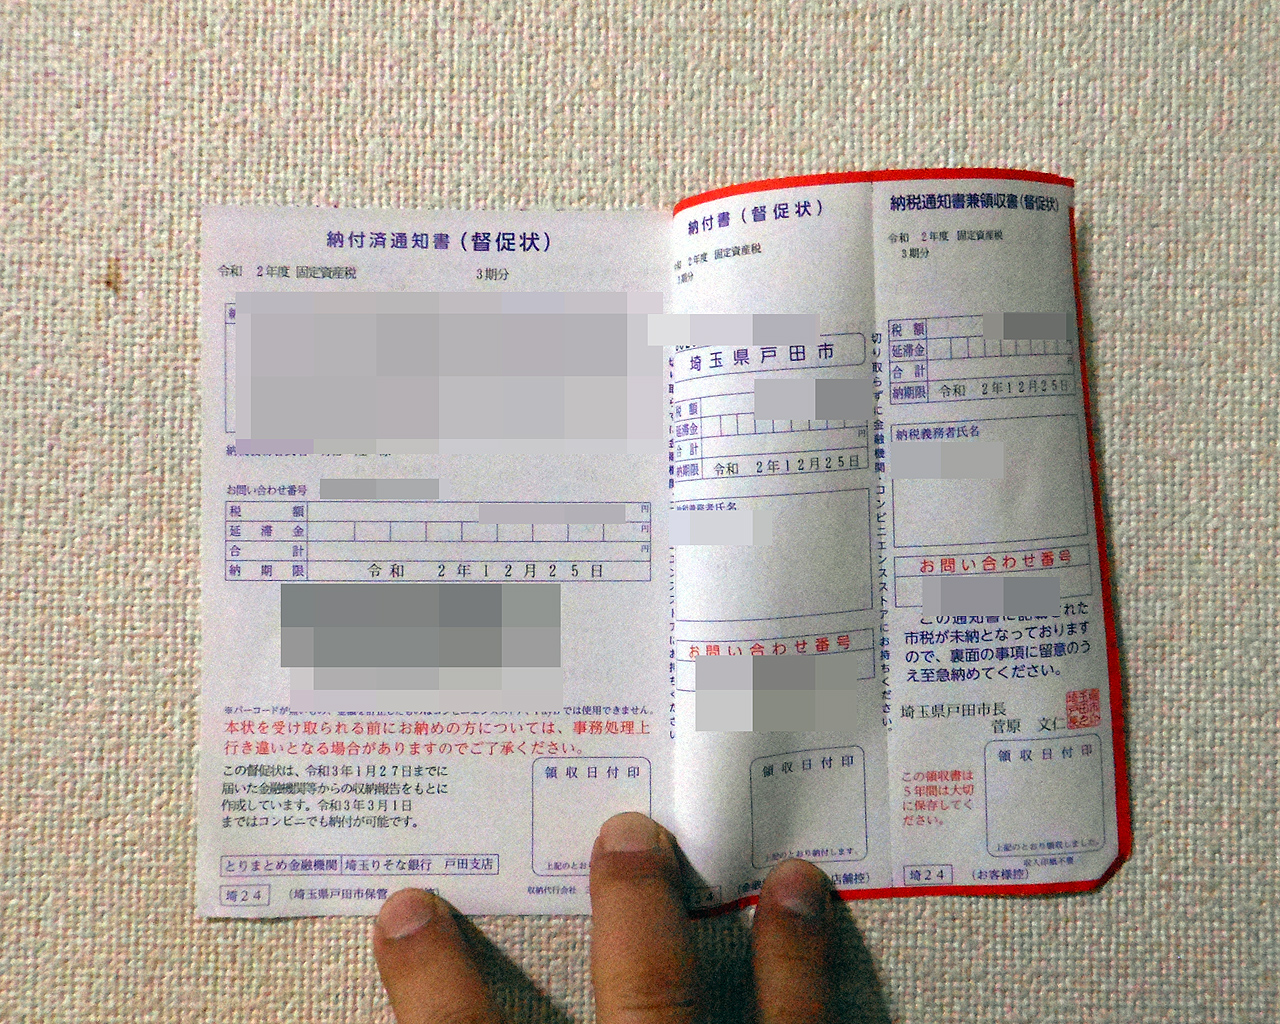 納付済通知書(督促状)
令和 2年度 固定資産税 3期分
お問い合わせ番号
税額 円
延滞金 円
合計 円
納期限 令和 2年12月25日
本状を受け取られる前にお納めの方については、事務処理上
行き違いとなる場合がありますのでご了承ください。
この督促状は、令和3年1月27日までに
届いた金融機関等からの収納報告をもとに
作成しています。令和3年3月1日
まではコンビニでも納付が可能です。
領収日付印
上記のとお
とりまとめ金融機関 埼玉りそな銀行 戸田支店
埼24 (埼玉県戸田市保管
収納代行会社
納付書(督促状)
令和 2年度 固定資産税
3期分
埼玉県戸田市
税額
延滞金 円
合計
納期限 令和 2年12月25日
お問い合わせ番号
領収日付印
上記のとおり納付します。
店舗控)
切り取らずに金融機関・コンビニエンスストアにお持ちください。
納税通知書兼領収書(督促状)
令和 2年度 固定資産税
3期分
税額
延滞金 円
合計 円
納期限 令和 2年12月25日
納税義務者氏名
お問い合わせ番号
この通知書に記載された
市税が未納となっております
ので、裏面の事項に留意のう
え至急納めてください。
埼玉県戸田市長
菅原 文仁
この領収書は
5年間は大切
に保存してく
ださい。
領収日付印
上記のとおり領収しました。
収入印紙不要
埼24 (お客様控)